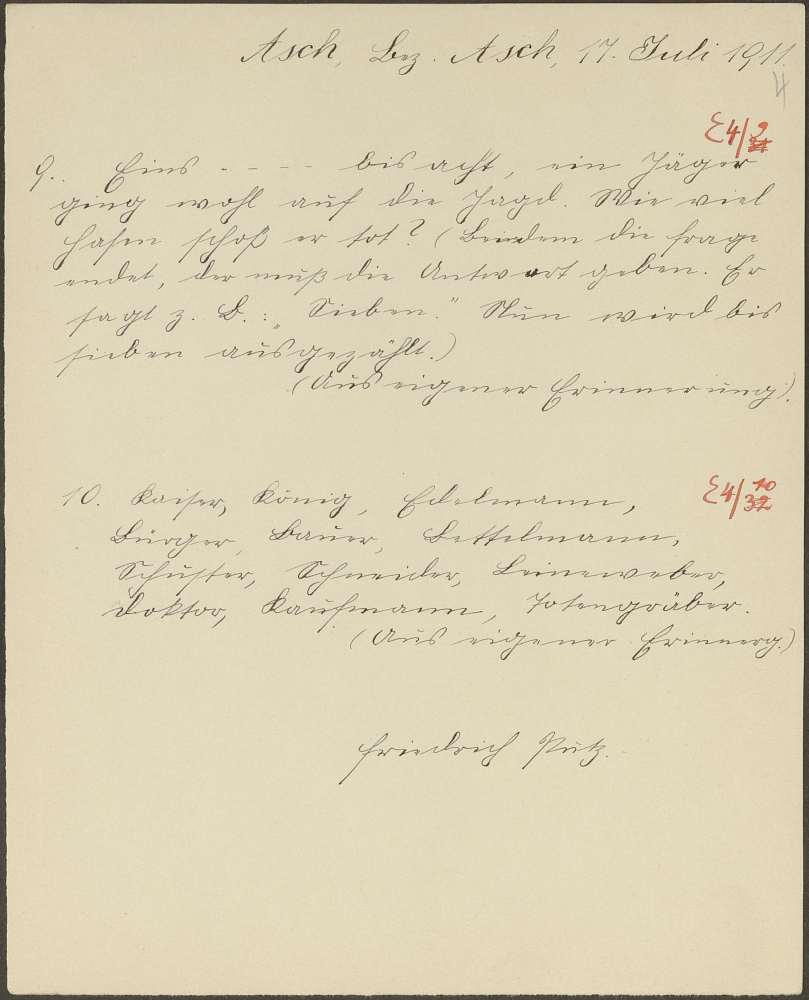 Asch, Bez. Asch, 17. Juli 1911.
4
9. Eins - - - - bis acht, ein Jäger
ging wohl auf die Jagd. Wie viel
Hasen schoß er tot? (Bei dem die Frage
endet, der muß die Antwort geben. Er
sagt z. B.: „Sieben.“ Nun wird bis
sieben ausgezählt.)
(Aus eigener Erinnerung).
10. Kaiser, König, Edelmann,
Bürger, Bauer, Bettelmann,
Schuster, Schneider, Leineweber,
Doktor, Kaufmann, Totengräber.
(Aus eigener Erinnerg.)
Friedrich